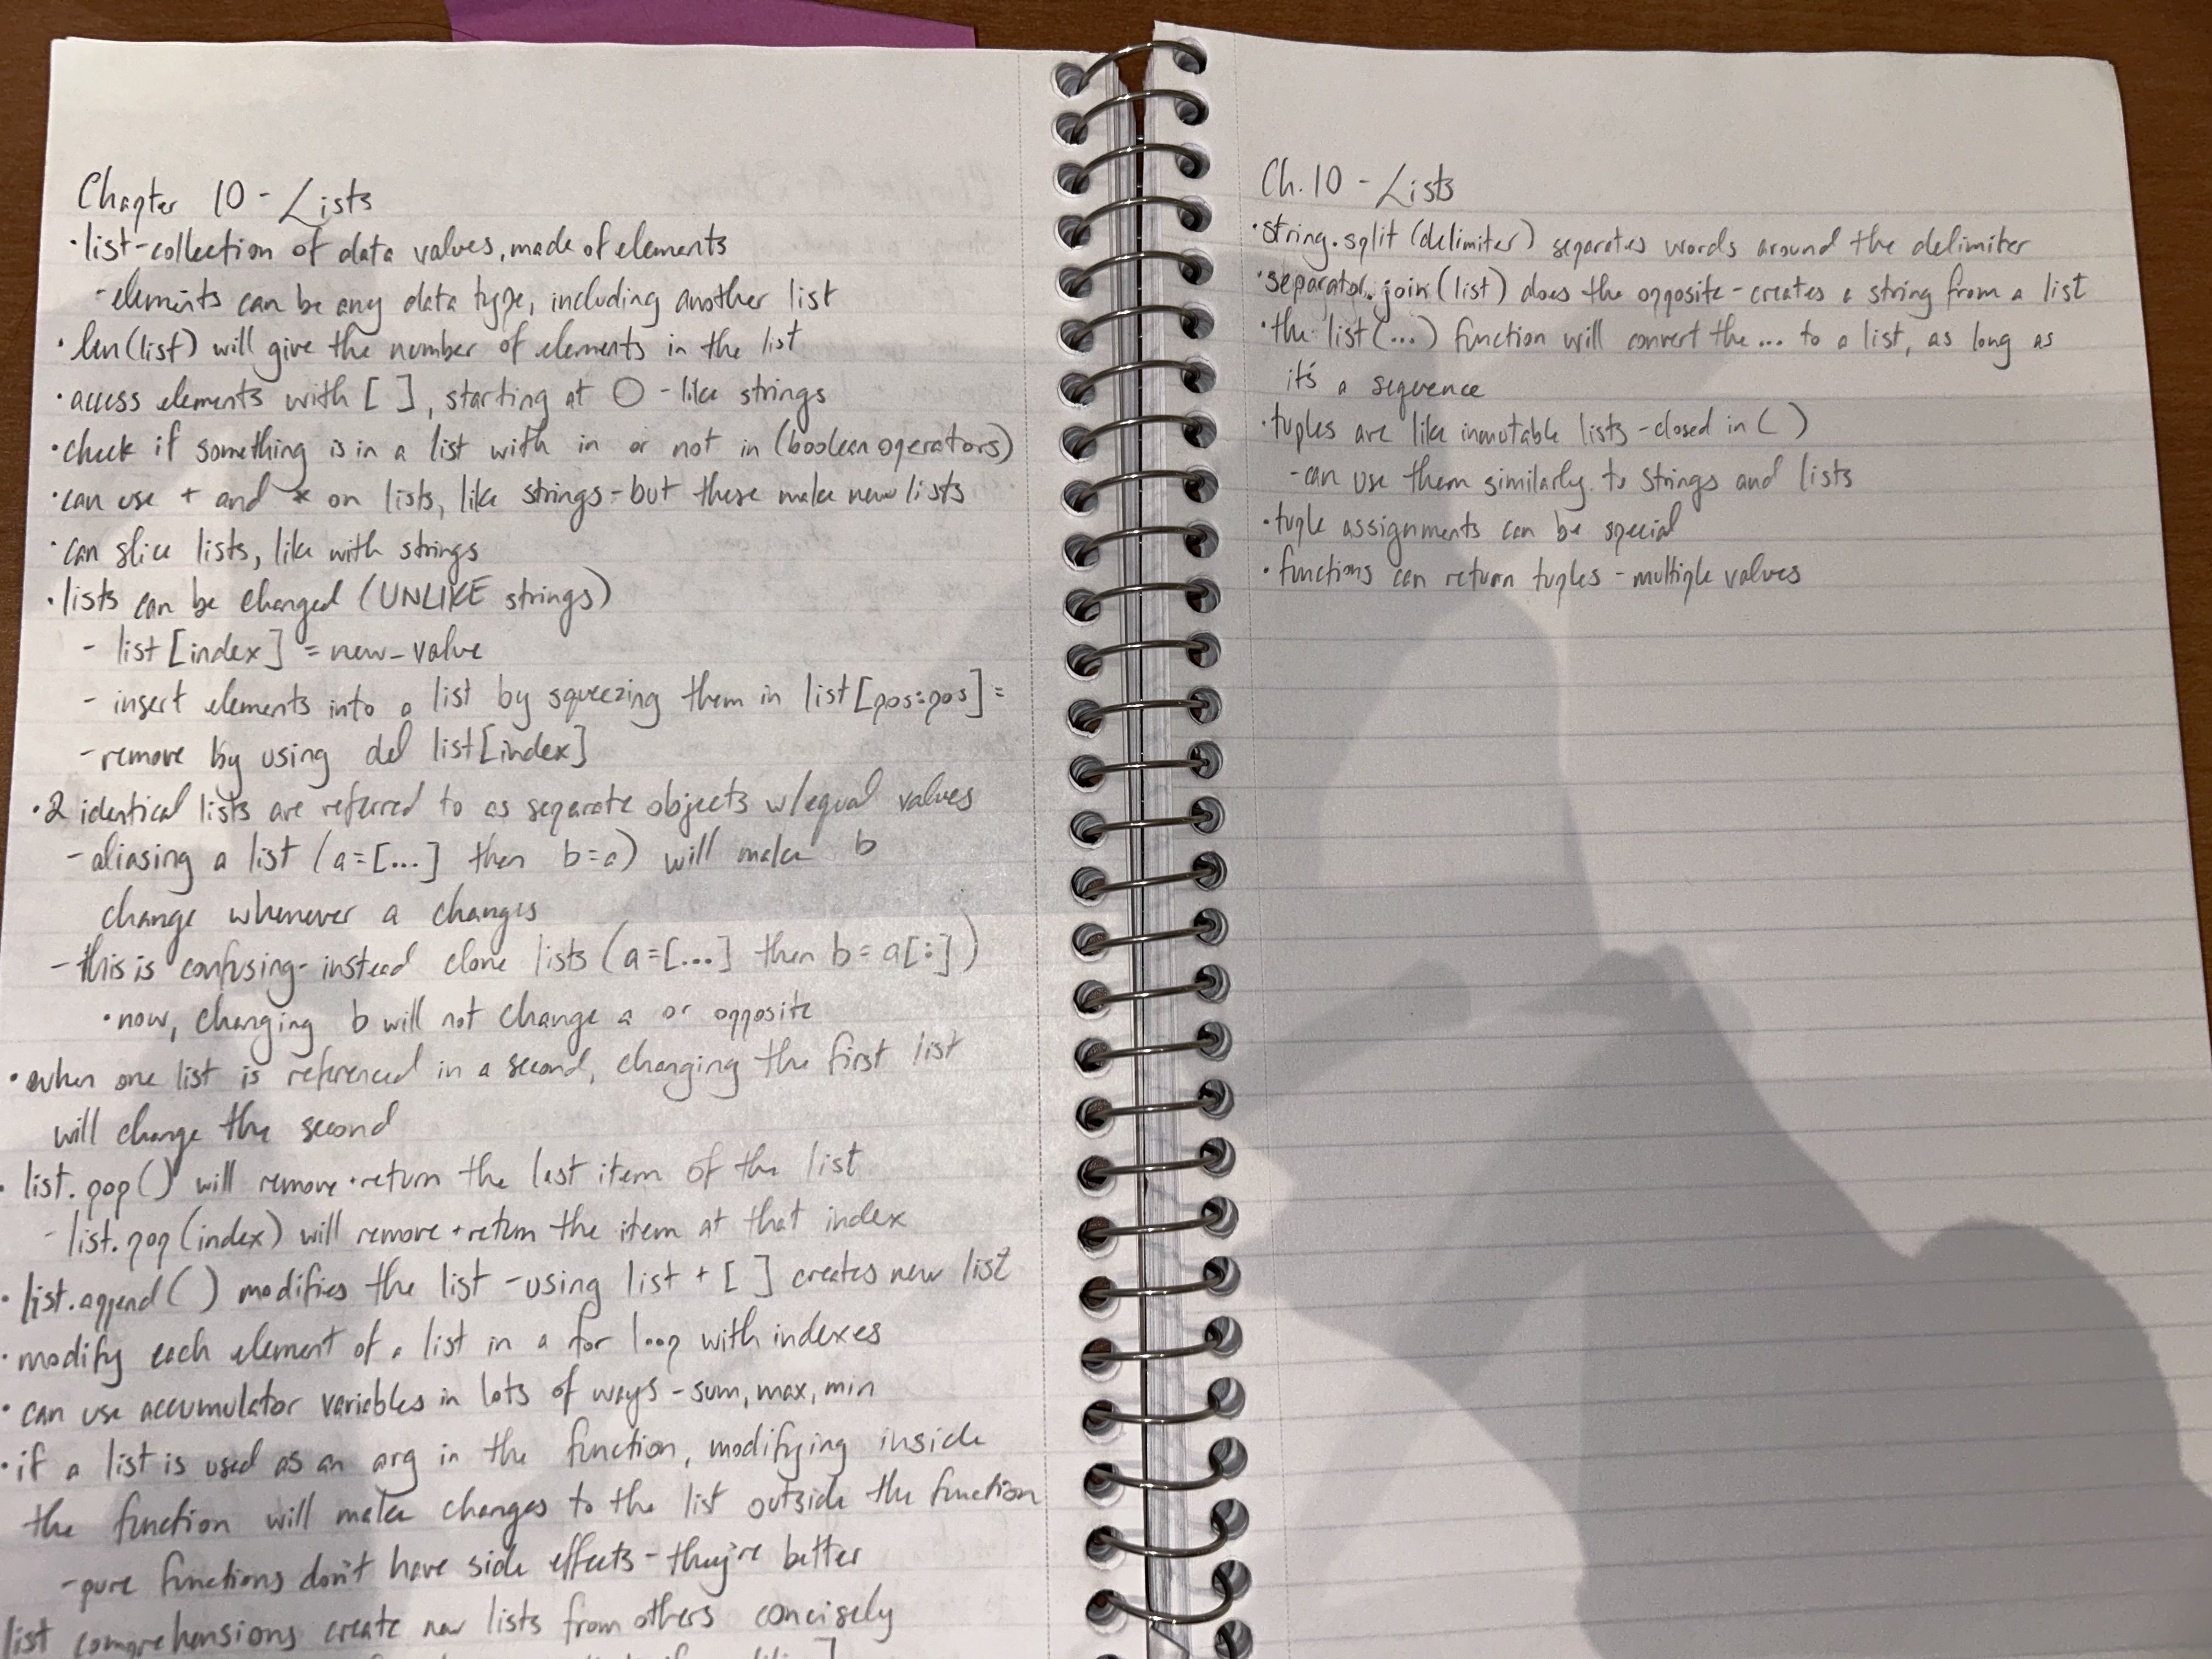 Chapter 10 - Lists
• list - collection of data values, made of elements
- elements can be any data type, including another list
• len(list) will give the number of elements in the list
• access elements with [ ], starting at 0 - like strings
• check if something is in a list with in or not in (boolean operators)
• can use + and * on lists, like strings - but these make new lists
• can slice lists, like with strings
• lists can be changed (UNLIKE strings)
- list[index] = new_value
- insert elements into a list by squeezing them in list[pos:pos] =
- remove by using del list[index]
• 2 identical lists are referred to as separate objects w/equal values
- aliasing a list (a=[...] then b=a) will make b
change whenever a changes
- this is confusing - instead clone lists (a=[...] then b=a[:])
• now, changing b will not change a or opposite
• when one list is referenced in a second, changing the first list
will change the second
• list.pop() will remove + return the last item of the list
- list.pop(index) will remove + return the item at that index
• list.append() modifies the list - using list + [ ] creates new list
• modify each element of a list in a for loop with indexes
• can use accumulator variables in lots of ways - sum, max, min
• if a list is used as an arg in the function, modifying inside
the function will make changes to the list outside the function
- pure functions don't have side effects - they're better
list comprehensions create new lists from others concisely
Ch. 10 - Lists
• string.split(delimiter) separates words around the delimiter
• separator.join(list) does the opposite - creates a string from a list
• the list(...) function will convert the ... to a list, as long as
it's a sequence
• tuples are like immutable lists - closed in ( )
- can use them similarly to strings and lists
• tuple assignments can be special
• functions can return tuples - multiple values